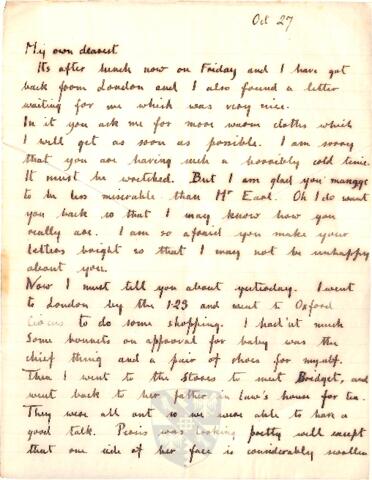 Oct 27
My own dearest
Its after lunch now on Friday and I have got
back from London and I also found a letter
waiting for me which was very nice.
In it you ask me for more warm cloths which
I will get as soon as possible. I am sorry
that you are having such a horribly cold time.
It must be wretched. But I am glad you manage
to be less miserable than Mr Earl. Oh I do want
you back so that I may know how you
really are. I am so afraid you make your
letters bright so that I may not be unhappy
about you.
Now I must tell you about yesterday. I went
to London by the 1-23 and went to Oxford
Circus to do some shopping. I had'nt much
Some bonnets on approval for baby was the
chief thing and a pair of shoes for myself.
Then I went to the Stores to meet Bridget, and
went back to her father in law's house for tea.
They were all out so we were able to have a
good talk. was looking pretty well except
that one side of her face is considerably swollen